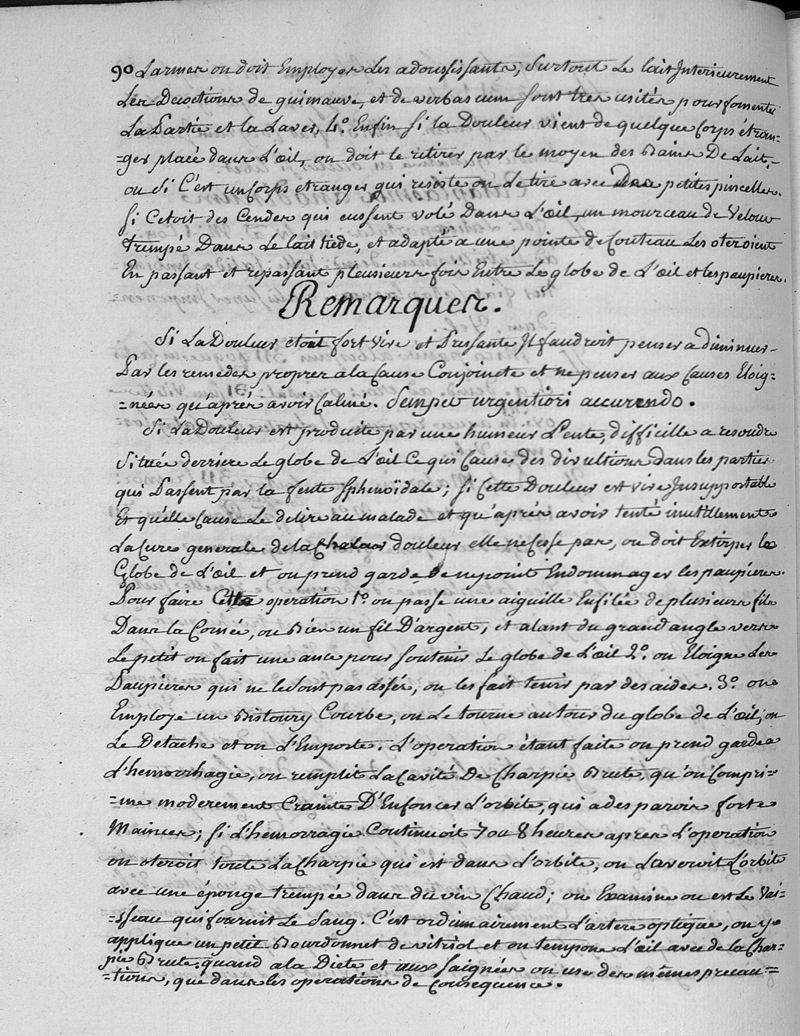 90 Larmes on doit Employer Les adousissants, surtout Le lait Interieurement
Les Decoctions de guimauve, et de verbascum sont tres usités pour fomenter
La Partie et la Laver, 4.° Enfin si la Douleur vient de quelque Corps étran-
=ger placé dans L'œil, on doit le retirer par le moyen des Bains De Lait,
ou si C'est un Corps etranger qui resiste on Le tire avec Des petites pincelles.
si Cetoit des Cendres qui eussent volé Dans L'œil, un mourceau de Velour
trempé Dans Le lait tiede, et adapté a une pointe de Couteau Les oteroient
En passant et repassant plusieurs fois Entre Le globe de L'œil et les paupieres.
Remarques.
Si La Douleur etoit fort vive et Pressante Il faudroit penser a diminuer
Par les remedes propres a la Cause Conjoincte et ne penser aux Causes Eloig-
=nées qu'aprés avoir Calmé. Semper urgentiori accurendo.
Si La Douleur est produite par une humeur Lente, difficille a resoudre
située derriere Le globe de L'œil Ce qui Cause des divultions dans les parties
qui Passent par la fente sphenoïdale; si Cette Douleur est vive Insupportable
Et qu'elle Cause Le delire au malade et qu'aprés avoir tenté inutillement
La Cure generale de la douleur elle ne Cesse pas, on doit Extirper le
Globe de L'œil et on prend garde de ne point Endommager les paupieres.
Pour faire Cette operation 1.° on passe une aiguille Enfilée de plusieurs fils
Dans la Cornée, ou Bien un fil D'argent, et alant du grand angle vers
Le petit on fait une ance pour soutenir Le globe de L'œil 2.° on Eloigne Les
Paupieres qui ne le sont pas assés, on les fait tenir par des aides. 3.° on
Employe un Bistoury Courbe, on Le tourne autour du globe de L'œil, on
Le Detache et on L'Emporte. L'operation étant faite on prend garde a
L'hemorrhagie, on remplit La Cavité De Charpie Brute, qu'on Compri-
=me moderement Crainte D'Enfoncer L'orbite, qui a des parois forts
Mainces; si L'hemorragie Continuoit 7 ou 8 heures apres L'operation
on oteroit toute La Charpie qui est dans L'orbite, on Laveroit L'orbite
avec une éponge trempée dans du vin Chaud; on Examine ou est Le Vai-
=sseau qui fournit Le Sang. C'est ordinairement L'artere optique, on y
applique un petit Bourdonnet de vitriol et on tempone L'œil avec de la Char-
pie Brute. quand a la Diete et aux saignées on use des mêmes precau=
=tions, que dans les operations de Consequence.